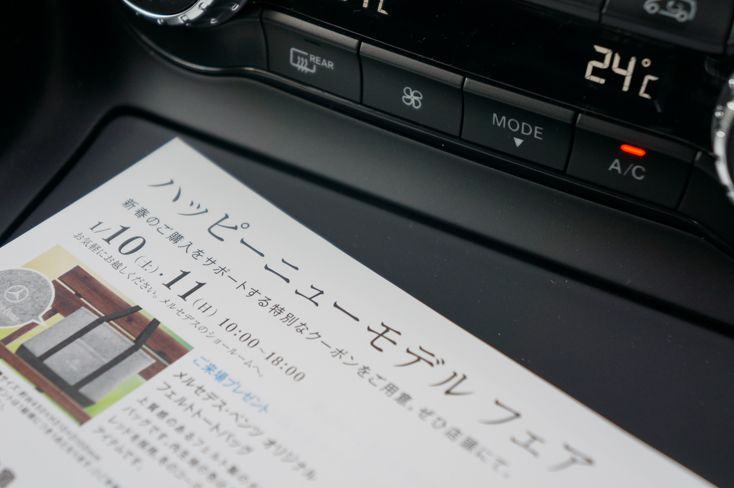 REAR
MODE
24℃
A/C
ハッピーニューモデル フェア
新春のご購入をサポートする特別なクーポンをご用意。ぜひ店頭にて。
1/10(土)・11(日) 10:00~18:00
お気軽にお越しください。メルセデスのショールームへ。
ご来場プレゼント
メルセデス・ベンツ オリジナル
フェルトトートバッグ
上質感のあるフェルト製の
アイテムです。